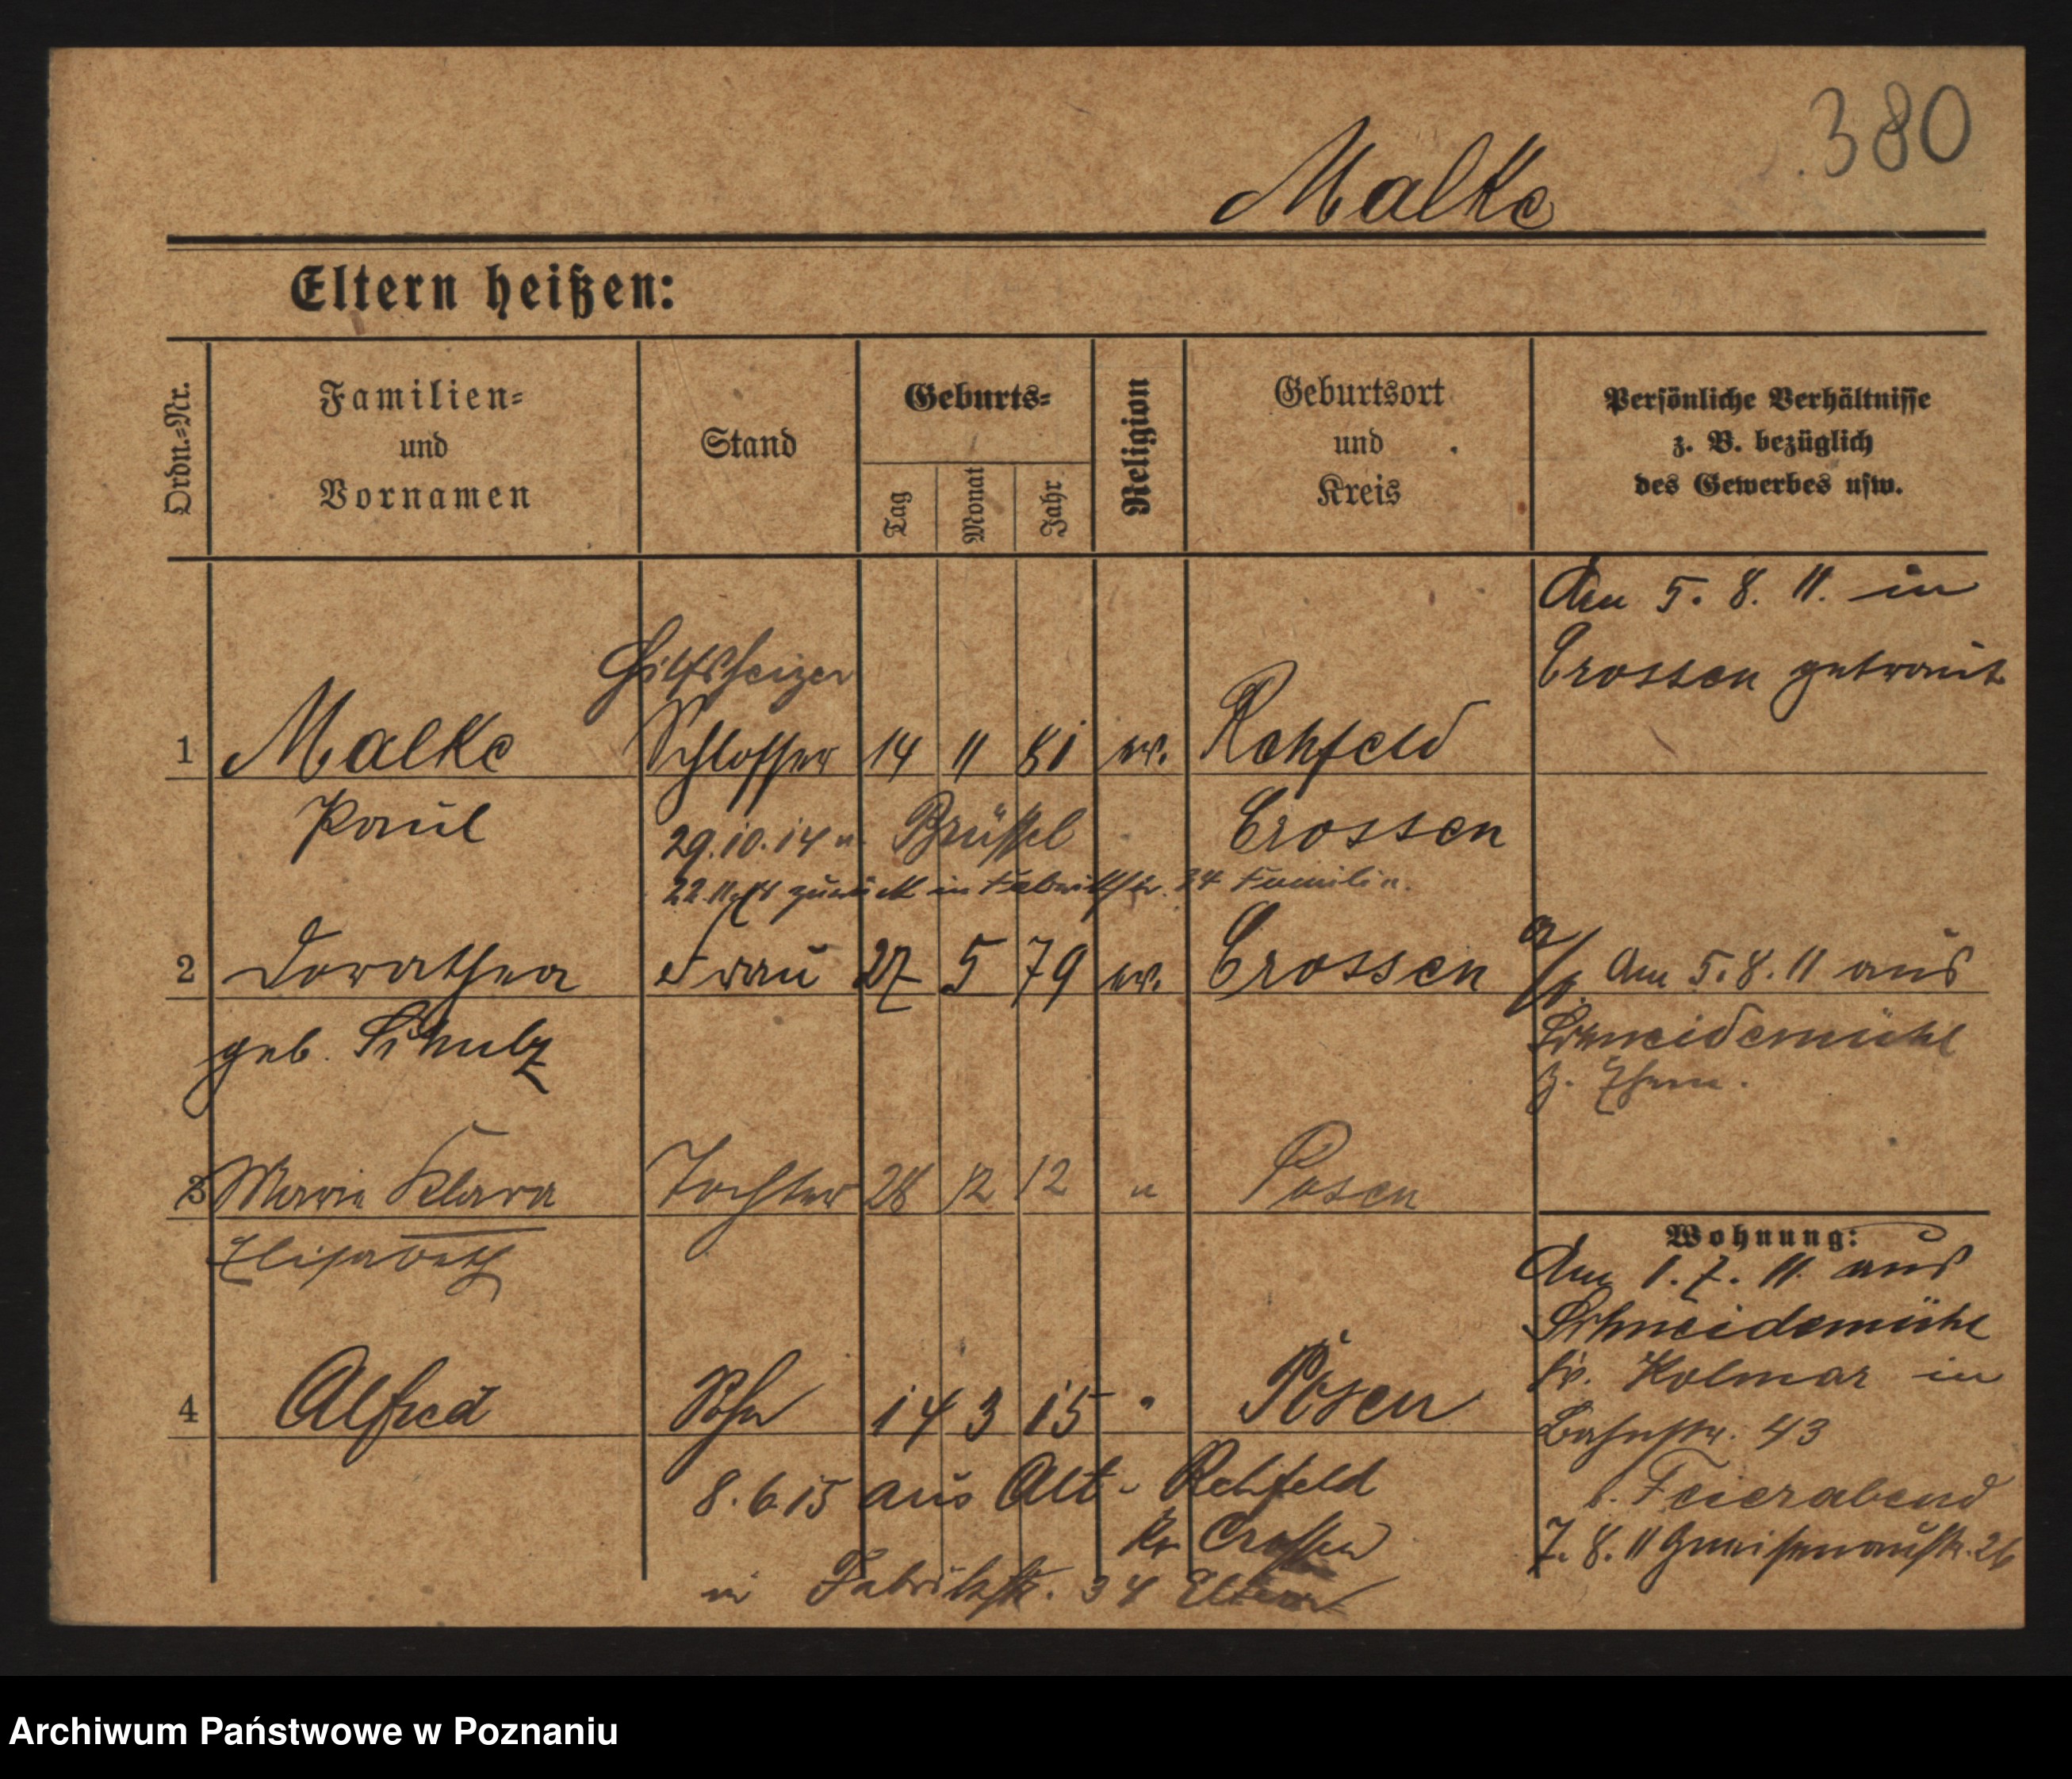 380
Malke
Eltern heißen:
Ordn.=Nr.
Familien=
und
Vornamen
Stand
Geburts=
Tag
Monat
Jahr
Religion
Geburtsort
und
Kreis
Persönliche Verhältnisse
z. B. bezüglich
des Gewerbes usw.
Am 5. 8. 11. in
Crossen getraut
Hilfsheizer
1 Malke Schlosser 14 11 81 ev. Rehfeld
Paul Crossen
29.10.14 n. Brüssel
22.11.14 zurück in Fabrikstr. 34 Familie.
2 Dorothea Frau 27 5 79 ev. Crossen
geb. Schulz
Am 5.8.11 aus
Schneidemühl
z. Ehem.
3 Maria Klara Tochter 28 12 12 " Posen
Elisabeth
4 Alfred Sohn 14 3 15 " Posen
8.6.15 aus Alt-Rehfeld
Kr Crossen
in Fabrikstr. 34 Eltern
Wohnung:
Am 1. 7. 11. aus
Schneidemühl
Kr. Kolmar in
Bahnstr. 43
b. Feierabend
7. 8. 11 Gneisenaustr. 26
Archiwum Państwowe w Poznaniu